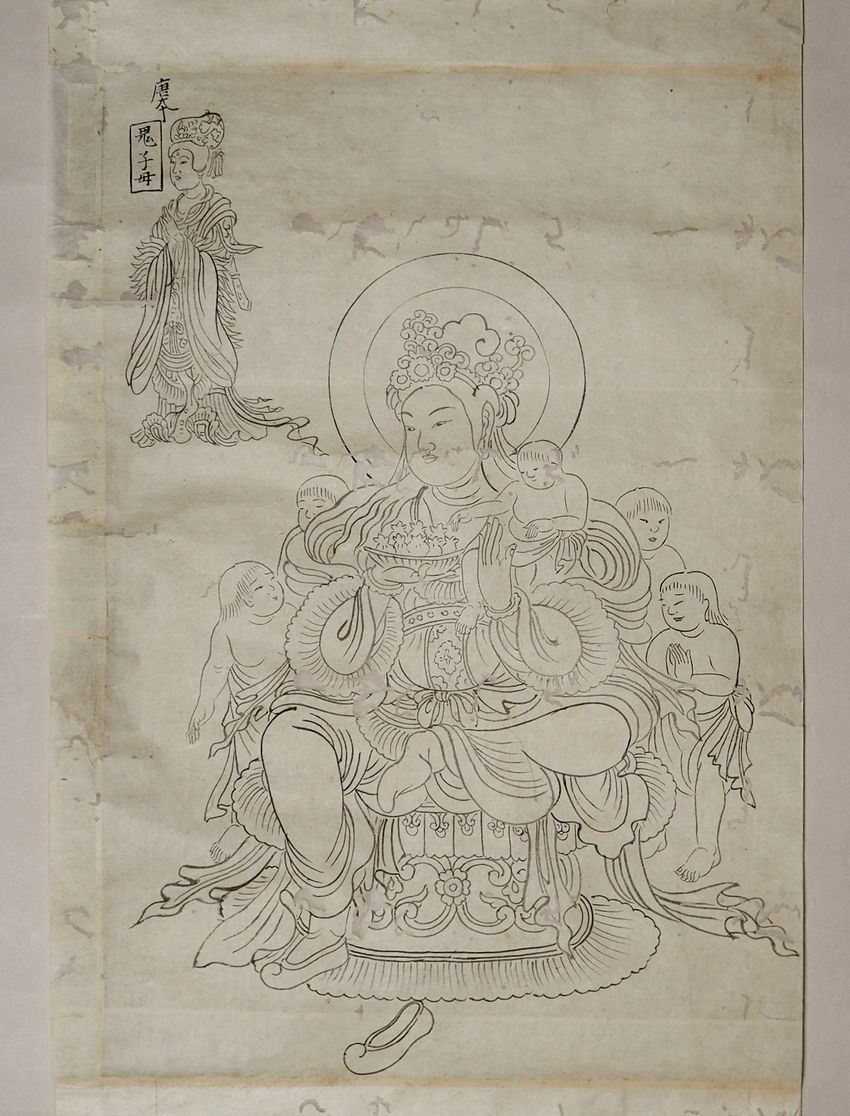 唐本
鬼子母